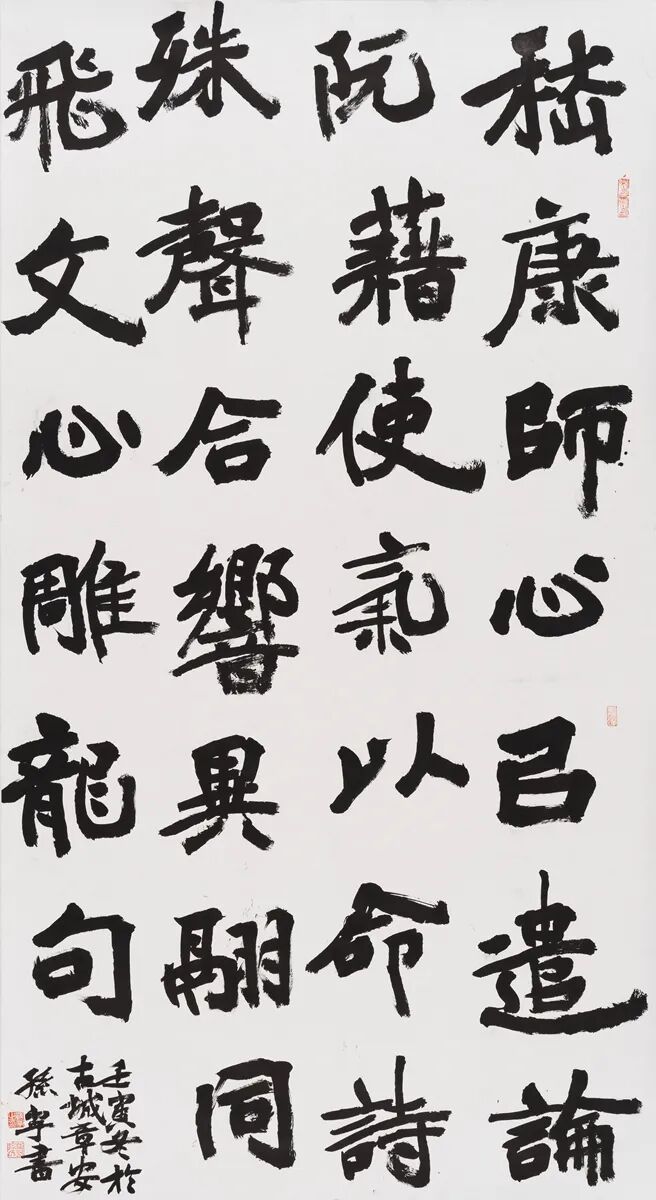 嵇康師心㠯遣論
阮藉使氣以命詩
殊聲合響異翮同
飛文心雕龍句
壬寅冬於
古城章安
孫寧書